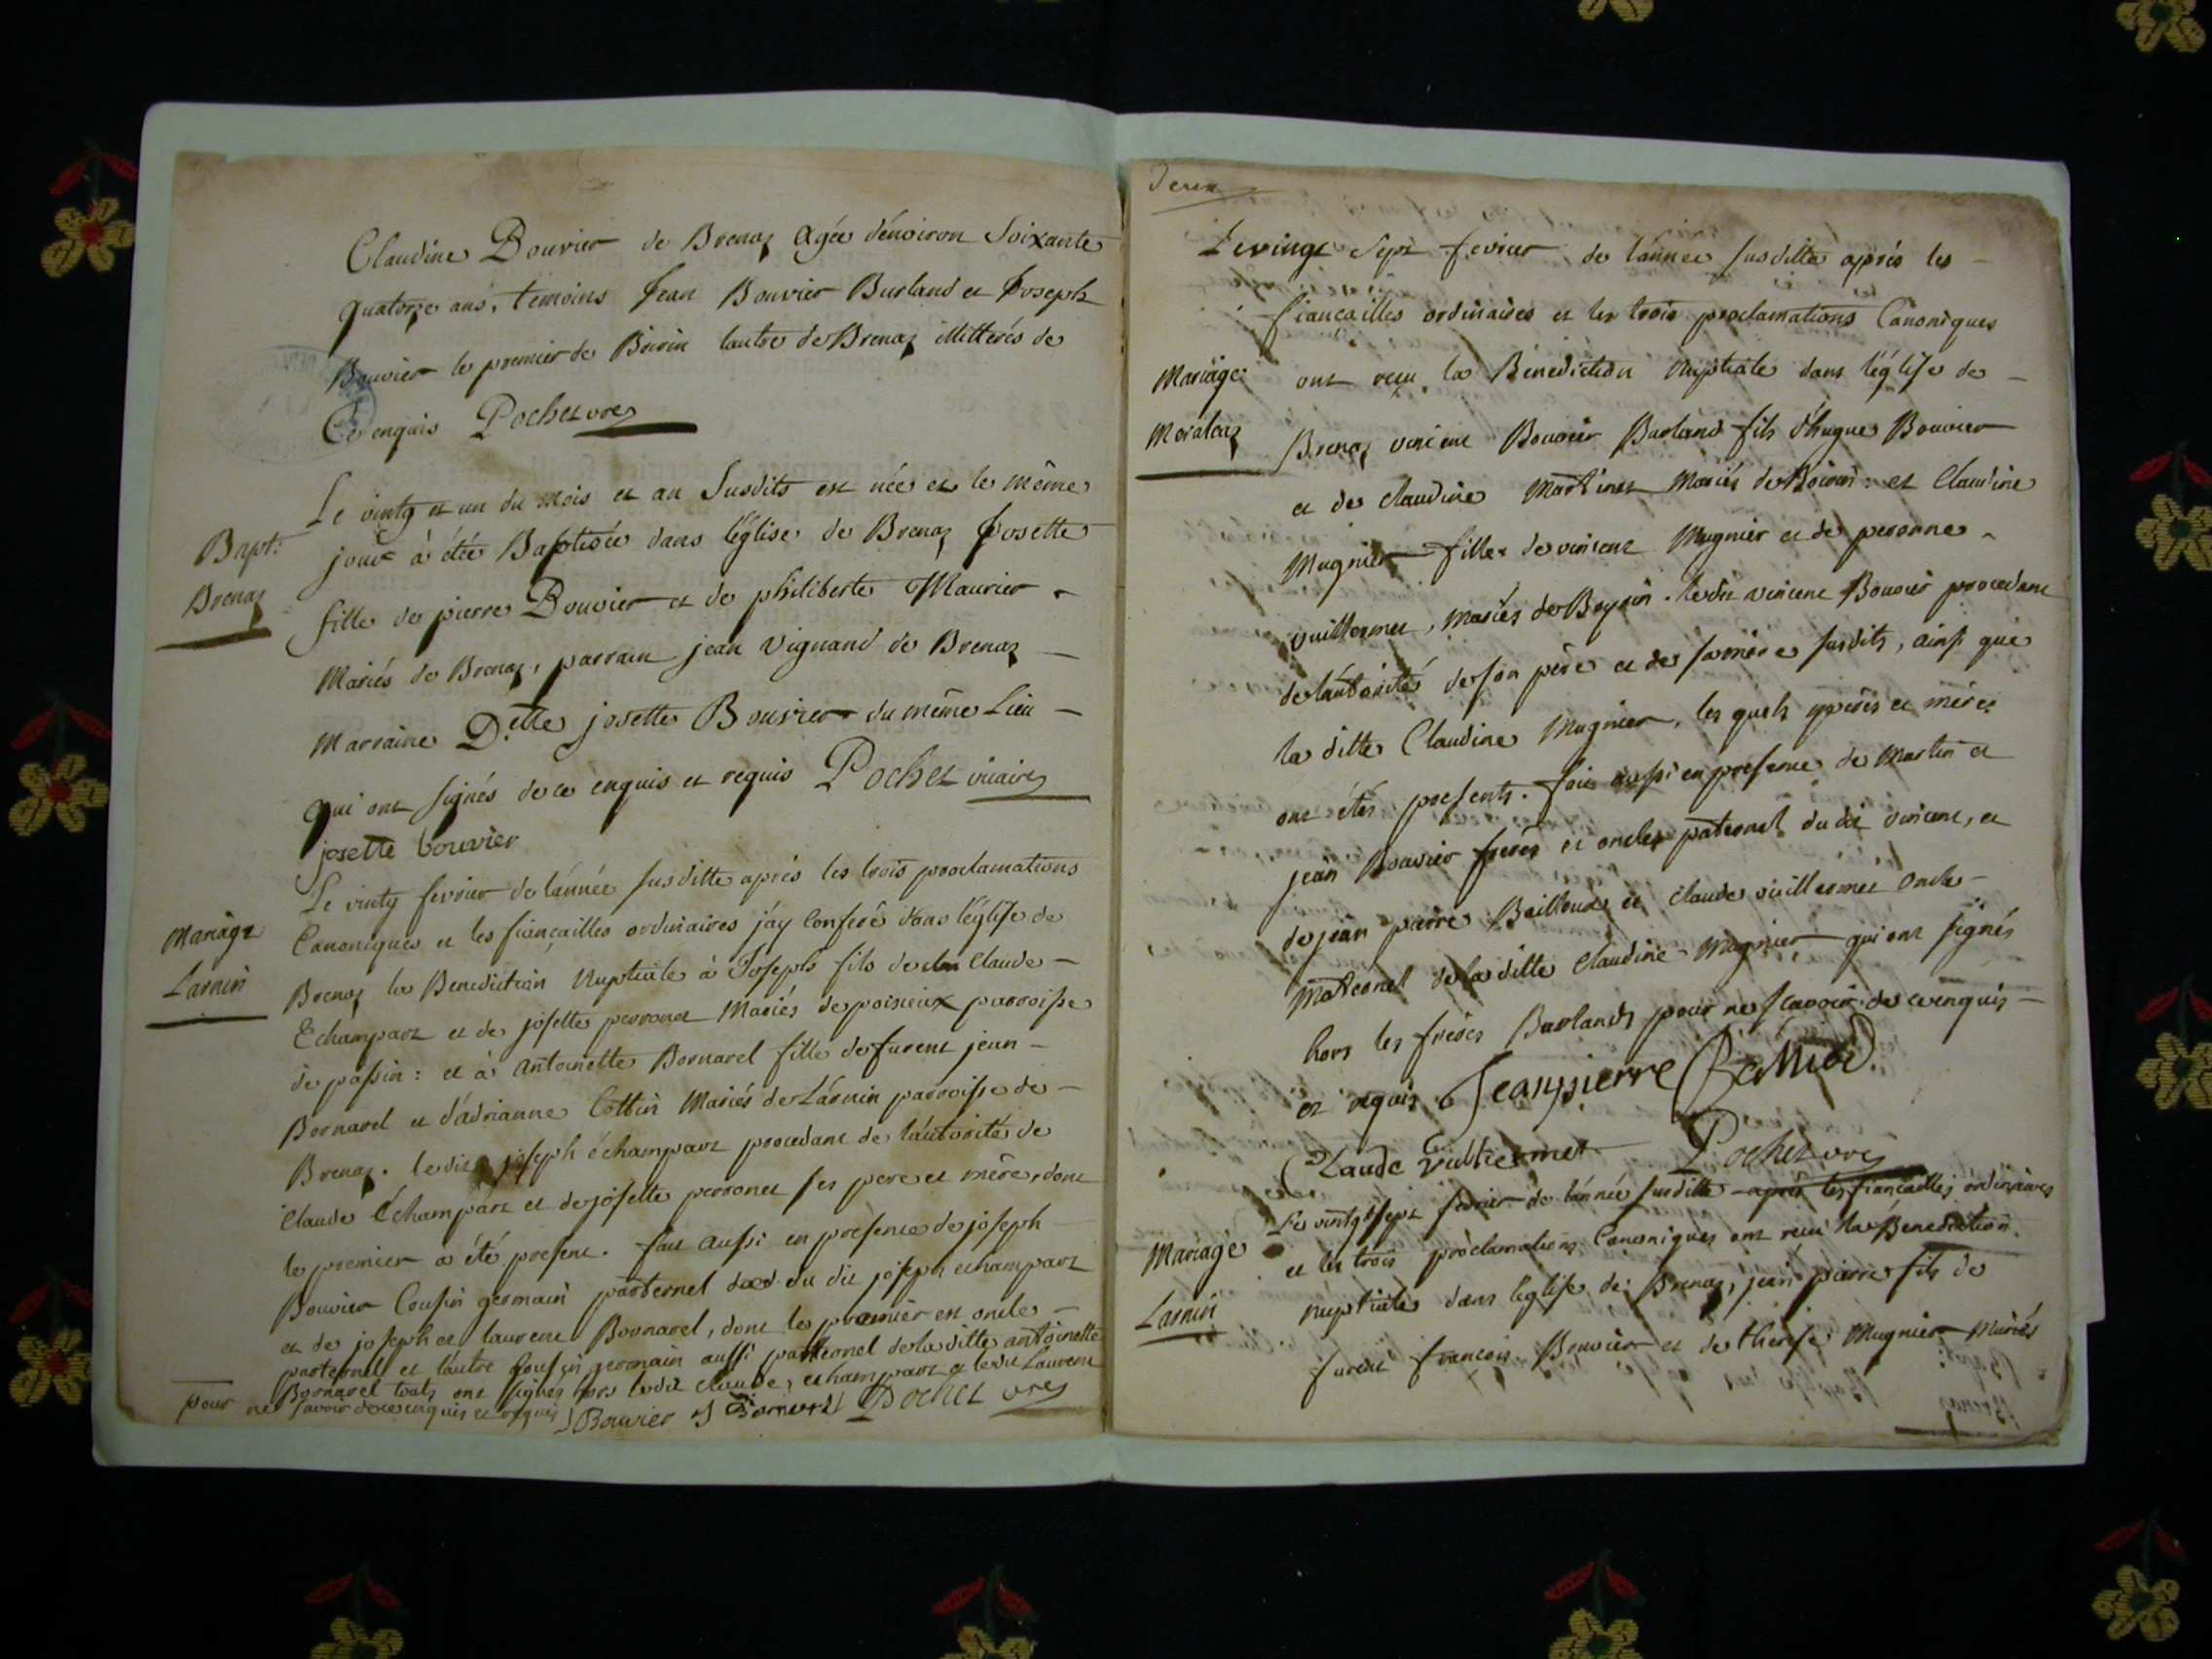 Claudine Bouvier de Brenaz Agée d'énviron Soixante
quatorze ans, temoins Jean Bouvier Burland et Joseph
Bouvier le premier de Boirin lautre de Brenaz illitterés de
Ce enquis Pochet vre
Bapt:
Brenaz
Le vintg et un du mois et an Susdits est née et le même
jour à étée Baptisée dans l'église de Brenaz Josette
fille de pierre Bouvier et de philiberte Maurier
Mariés de Brenaz, parrain jean Vignand de Brenaz
Marraine D.elle josette Bouvier du même Lieu
qui ont signés de ce enquis et requis Pochet vicaire
josette bouvier
Mariage
Larnin
Le vintg fevrier de l'année susditte aprés les trois proclamations
Canoniques et les fiancailles ordinaires j'ay conferé dans l'église de
Brenaz la Benediction Nuptiale à Joseph fils de Claude
Echampard et de josette perronet Mariés de poisieux parroisse
de passin: et à Antoinette Bornarel fille de furent jean
Bornarel et d'adrianne Cottin Mariés de Larnin parroisse de
Brenaz. ledit joseph échampard procedant de l'autorité de
Claude Échampard et de josette perronet ses pere et mère, dont
le premier a été present. fait aussi en presence de joseph
Bouvier Cousin germain parternel du dit joseph echampard
et de joseph et laurent Bornarel, dont le premier est oncle
parternel et l'autre Cousin germain aussi parternel de laditte antoinette
Bornarel touts ont signés hors ledit claude echampard et ledit Laurent
pour ne savoir de ce enquis et requis J Bouvier J Bornarel Pochet vre
Deux
Le vingt Sept fevrier de l'annee susditte aprés les
fiancailles ordinaires et les trois proclamations Canoniques
Mariage
Moraleaz
ont reçu la Bénediction Nuptiale dans l'église de
Brenaz vincent Bouvier Burland fils d'hugues Bouvier
et de claudine Martinet Mariés de Boirin: et Claudine
Mugnier fille de vincent Mugnier et de peronne
vuillermet, mariés de Boyrin. ledit vincent Bouvier procedant
de l'autorité de son père et de sa mère susdits, ainsi que
la ditte Claudine Mugnier, les quels pères et mères
ont étés presents. fait aussi en presence de Martin et
jean Bouvier frères et oncles paternel du dit vincent, et
de jean pierre Baillod et claude vuillermet oncle
Maternel de la ditte claudine Mugnier qui ont signés
hors les frères Burlands pour ne scavoir de ce enquis
et requis Jeanpierre Baillod
Claude Vullermet Pochet vre
Mariage
Larnin
Le vintgt sept fevrier de l'année susditte aprés les fiancailles ordinaires
et les trois proclamations Canoniques ont recu la Benediction
nuptiale dans l'église de Brenaz, jean pierre fils de
furent francois Bouvier et de therese Mugnier Mariés